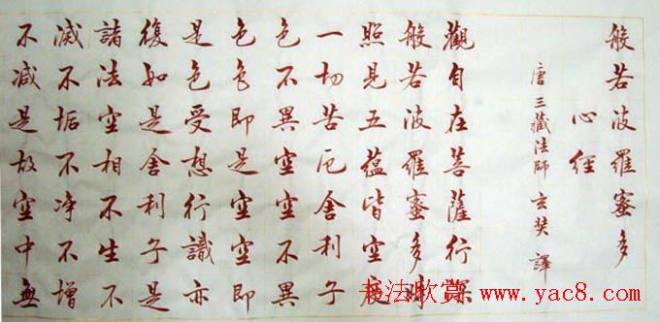 般若波羅蜜多
心經
唐三藏法師玄奘譯
觀自在菩薩行深
般若波羅蜜多時
照見五蘊皆空度
一切苦厄舍利子
色不異空空不異
色色即是空空即
是色受想行識亦
復如是舍利子是
諸法空相不生不
滅不垢不净不增
不減是故空中無
书法欣赏 www.yac8.com